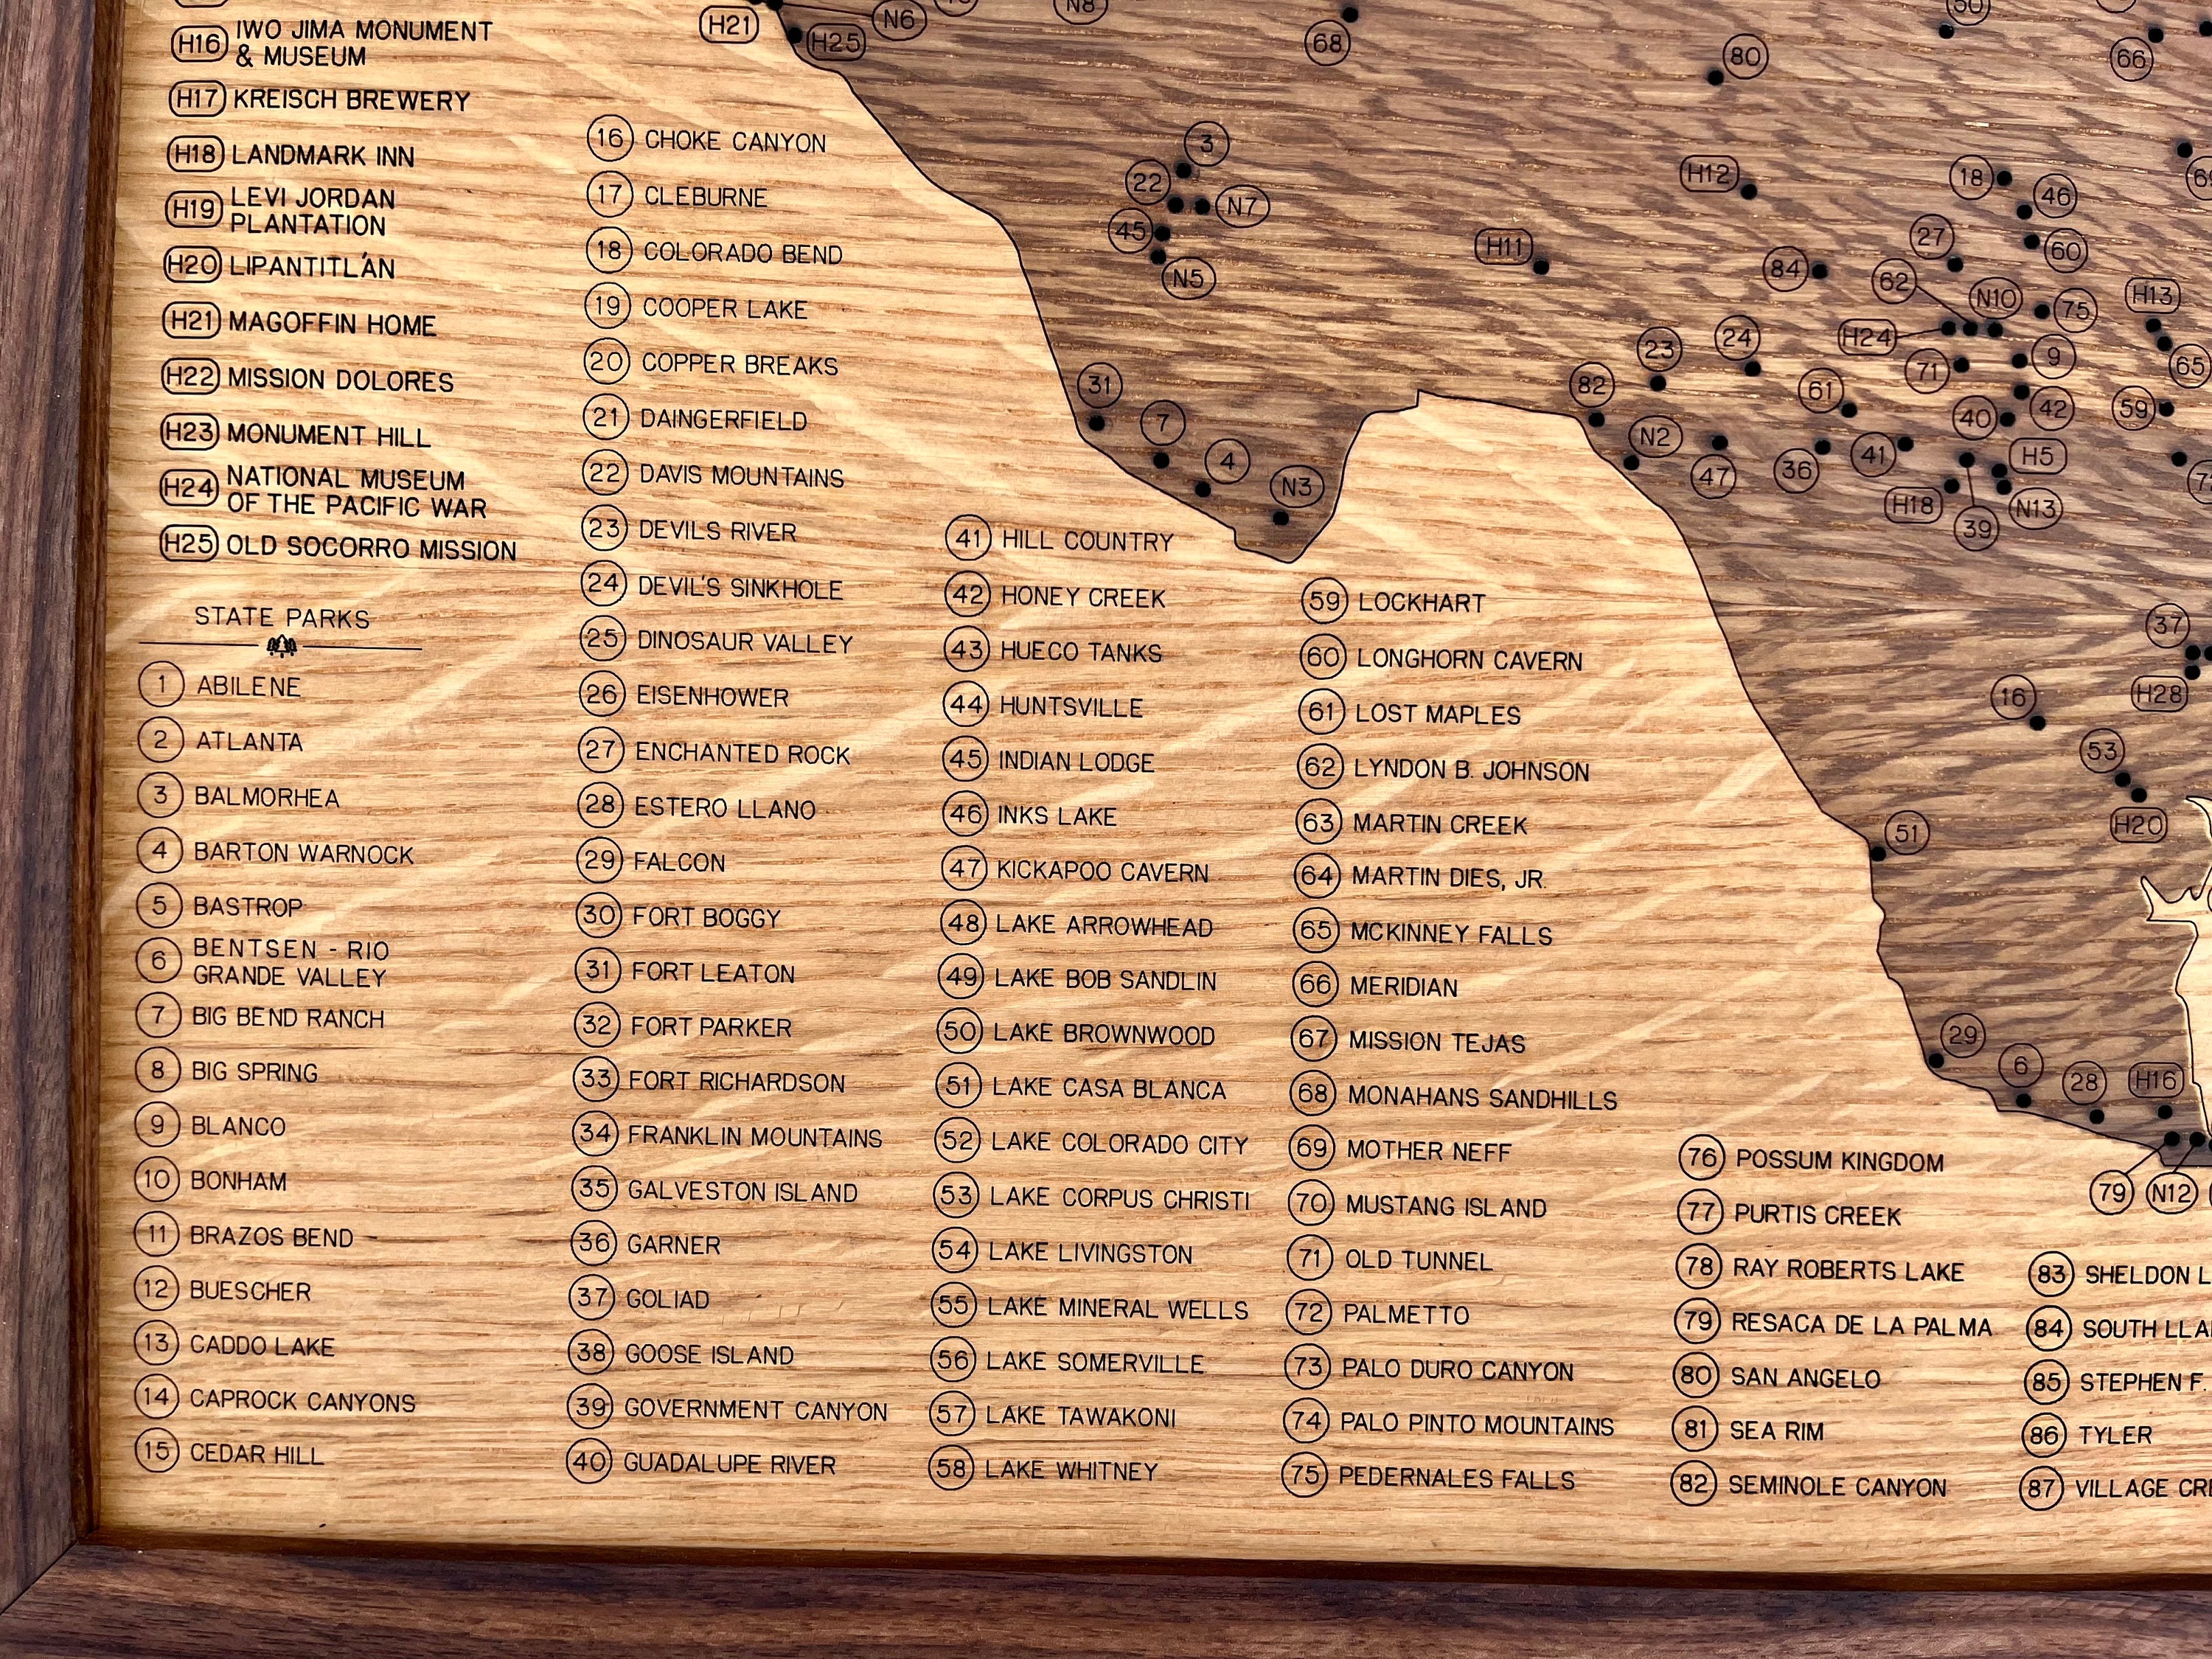 H16 IWO JIMA MONUMENT
& MUSEUM
H17 KREISCH BREWERY
H18 LANDMARK INN
H19 LEVI JORDAN
PLANTATION
H20 LIPANTITLÁN
H21 MAGOFFIN HOME
H22 MISSION DOLORES
H23 MONUMENT HILL
H24 NATIONAL MUSEUM
OF THE PACIFIC WAR
H25 OLD SOCORRO MISSION
STATE PARKS
1 ABILENE
2 ATLANTA
3 BALMORHEA
4 BARTON WARNOCK
5 BASTROP
6 BENTSEN - RIO
GRANDE VALLEY
7 BIG BEND RANCH
8 BIG SPRING
9 BLANCO
10 BONHAM
11 BRAZOS BEND
12 BUESCHER
13 CADDO LAKE
14 CAPROCK CANYONS
15 CEDAR HILL
16 CHOKE CANYON
17 CLEBURNE
18 COLORADO BEND
19 COOPER LAKE
20 COPPER BREAKS
21 DAINGERFIELD
22 DAVIS MOUNTAINS
23 DEVILS RIVER
24 DEVIL'S SINKHOLE
25 DINOSAUR VALLEY
26 EISENHOWER
27 ENCHANTED ROCK
28 ESTERO LLANO
29 FALCON
30 FORT BOGGY
31 FORT LEATON
32 FORT PARKER
33 FORT RICHARDSON
34 FRANKLIN MOUNTAINS
35 GALVESTON ISLAND
36 GARNER
37 GOLIAD
38 GOOSE ISLAND
39 GOVERNMENT CANYON
40 GUADALUPE RIVER
41 HILL COUNTRY
42 HONEY CREEK
43 HUECO TANKS
44 HUNTSVILLE
45 INDIAN LODGE
46 INKS LAKE
47 KICKAPOO CAVERN
48 LAKE ARROWHEAD
49 LAKE BOB SANDLIN
50 LAKE BROWNWOOD
51 LAKE CASA BLANCA
52 LAKE COLORADO CITY
53 LAKE CORPUS CHRISTI
54 LAKE LIVINGSTON
55 LAKE MINERAL WELLS
56 LAKE SOMERVILLE
57 LAKE TAWAKONI
58 LAKE WHITNEY
59 LOCKHART
60 LONGHORN CAVERN
61 LOST MAPLES
62 LYNDON B. JOHNSON
63 MARTIN CREEK
64 MARTIN DIES, JR.
65 MCKINNEY FALLS
66 MERIDIAN
67 MISSION TEJAS
68 MONAHANS SANDHILLS
69 MOTHER NEFF
70 MUSTANG ISLAND
71 OLD TUNNEL
72 PALMETTO
73 PALO DURO CANYON
74 PALO PINTO MOUNTAINS
75 PEDERNALES FALLS
76 POSSUM KINGDOM
77 PURTIS CREEK
78 RAY ROBERTS LAKE
79 RESACA DE LA PALMA
80 SAN ANGELO
81 SEA RIM
82 SEMINOLE CANYON
83 SHELDON L
84 SOUTH LLA
85 STEPHEN F.
86 TYLER
87 VILLAGE CR
H21
H25
N6
N8
68
80
50
66
3
22
N7
45
N5
H12
18
46
60
H11
84
27
62
N10
75
H13
H24
9
65
23
24
71
31
7
4
N3
82
N2
47
61
36
41
40
42
59
H5
H18
39
N13
37
H28
16
53
H20
51
29
6
28
H16
79
N12